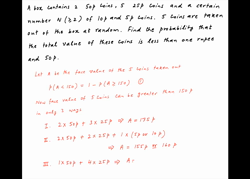 A box contains 2 50p coins, 5 25p coins and a certain
number N (≥2) of 10p and 5p coins. 5 coins are taken
out of the box at random. Find the probability that
the total value of these coins is less than one rupee
and 50p.
Let A be the face value of the 5 coins taken out
P(A<150) = 1 - P(A≥150) ①
Now face value of 5 coins can be greater than 150p
in only 3 ways
I. 2×50p + 3×25p ⇒ A = 175p
II. 2×50p + 2×25p + 1×(5p or 10p)
⇒ A = 155p or 160p
III. 1×50p + 4×25p ⇒ A=